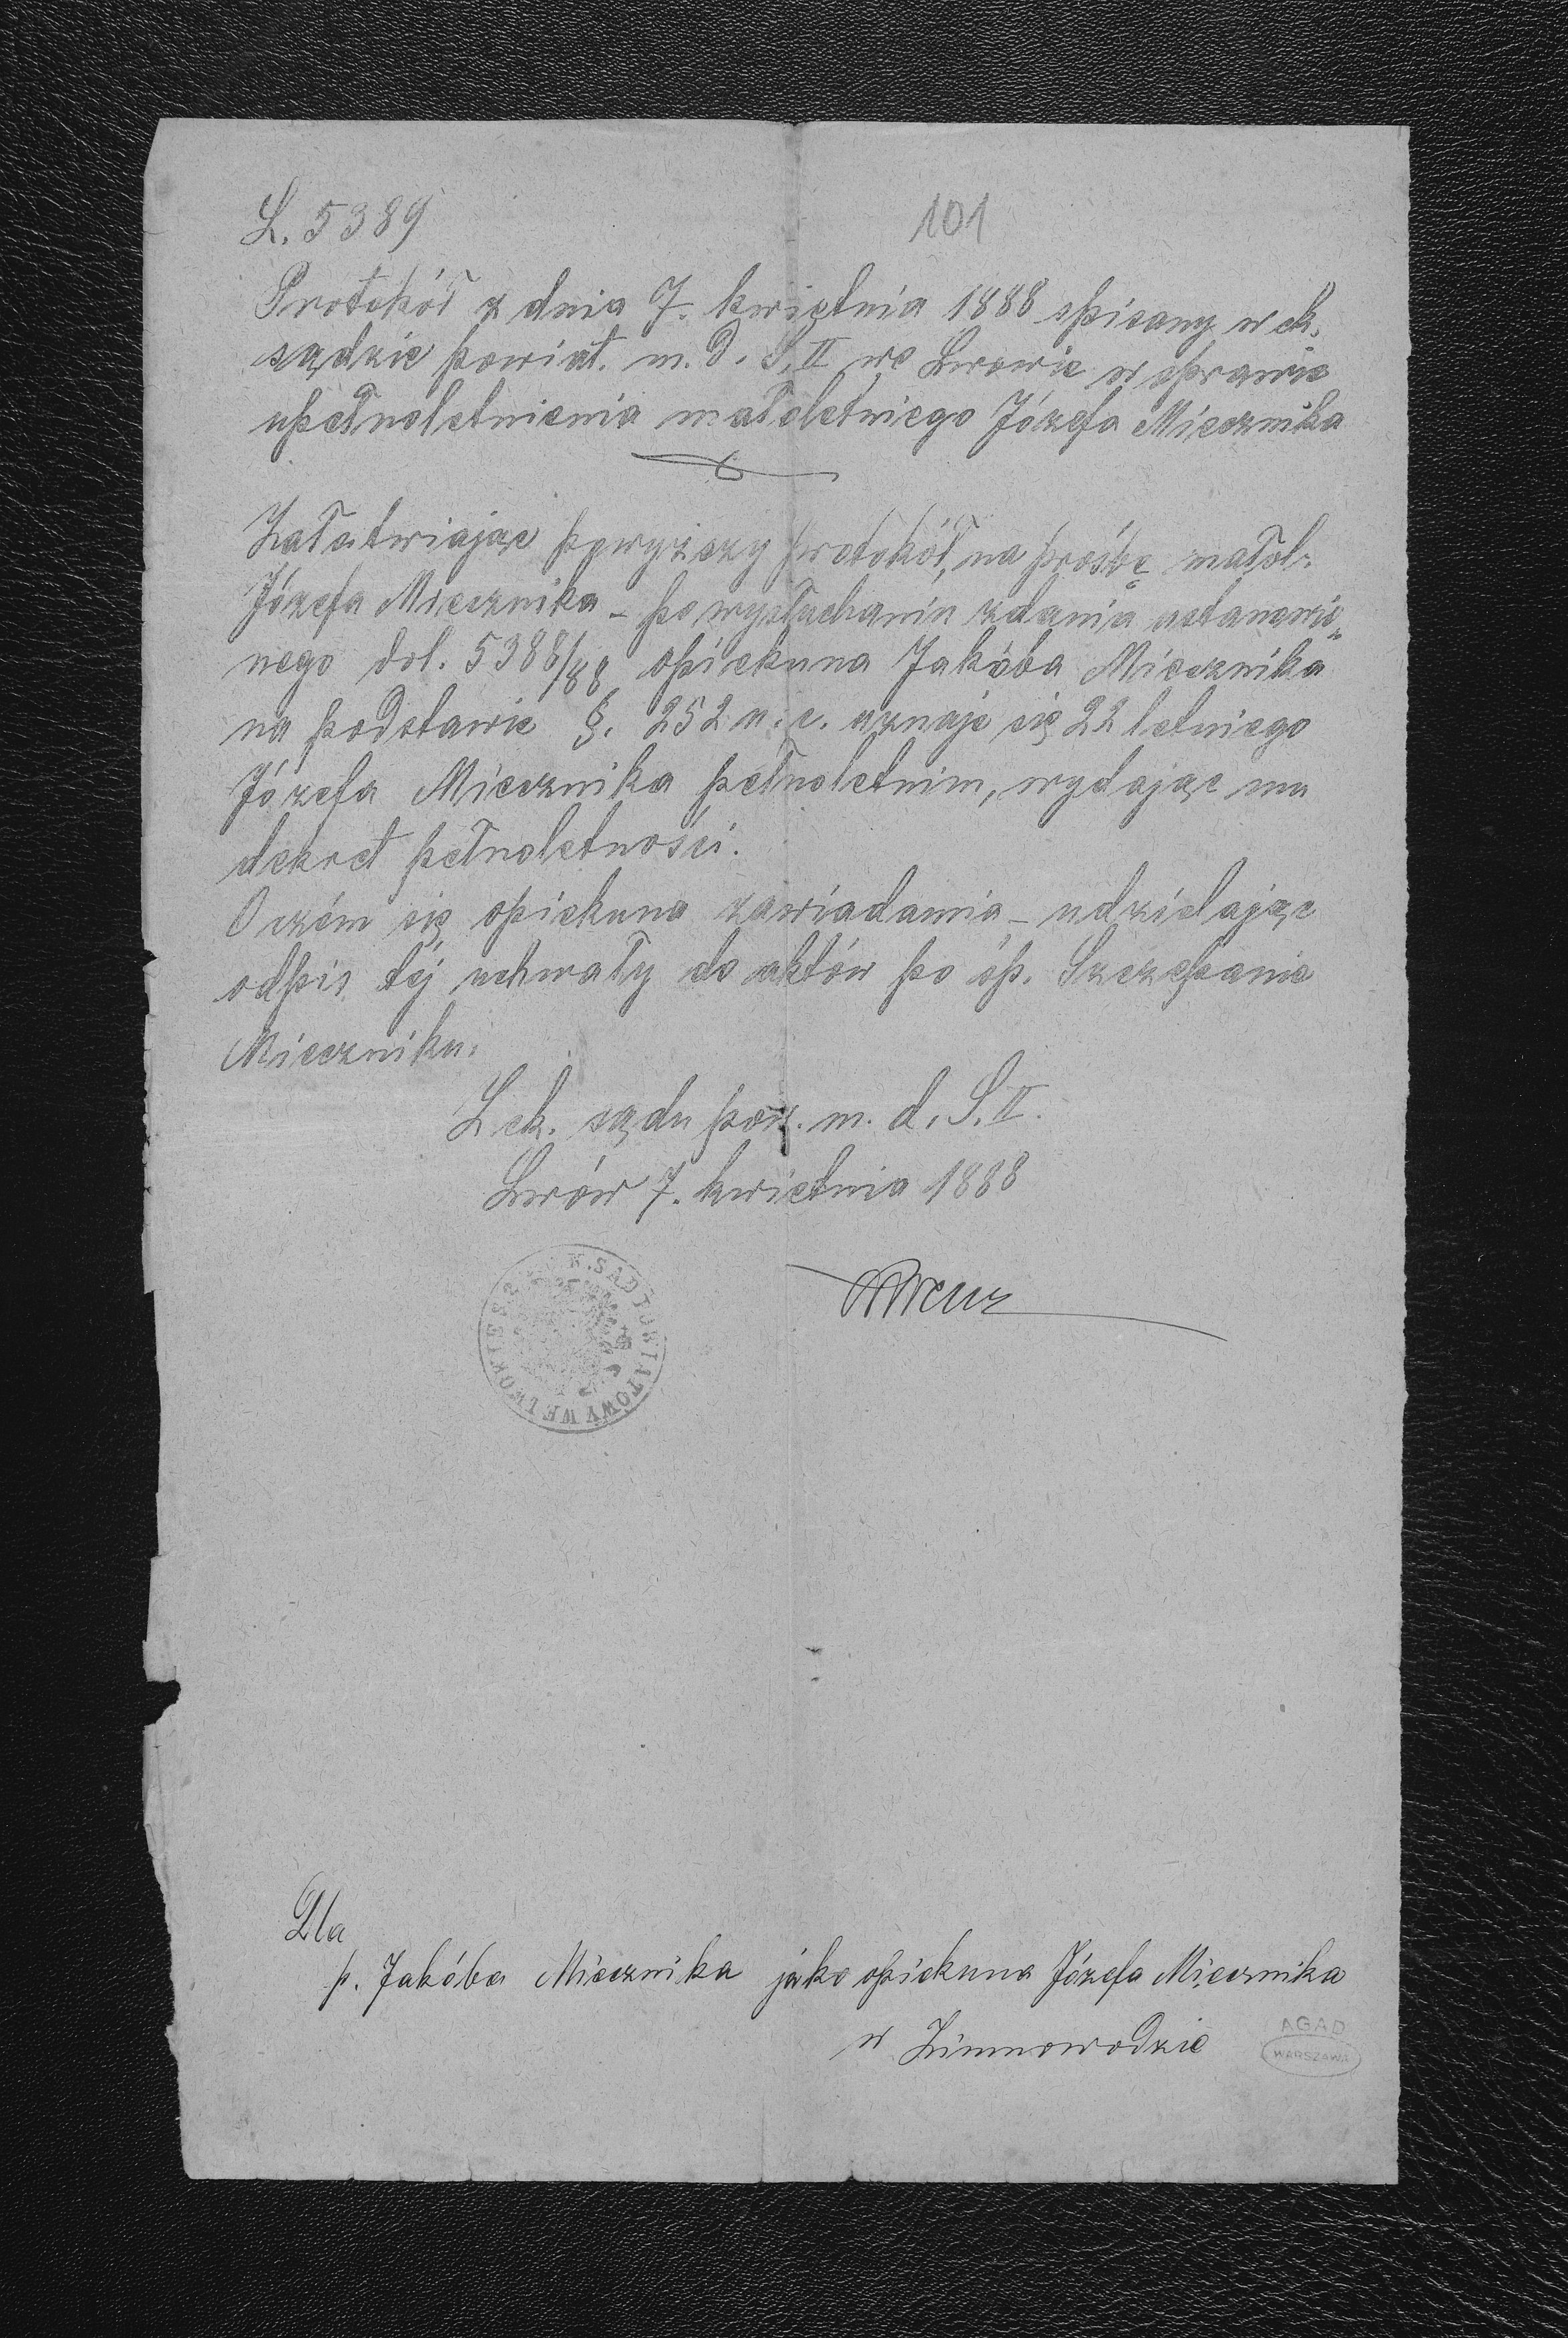 L. 5389
101
Protokół z dnia 7. kwietnia 1888 spisany w ck.
sądzie powiat. m. d. S. II we Lwowie w sprawie
upełnoletnienia małoletniego Józefa Miecznika
Załatwiając powyższy protokół, na prośbę małol.
Józefa Miecznika – po wysłuchaniu zdania ustanowio-
nego dol. 5388/88 opiekuna Jakóba Miecznika
na podstawie §. 252 u. c. uznaje się 22 letniego
Józefa Miecznika pełnoletnim, wydając mu
dekret pełnoletności.
O czém się opiekuna zawiadamia – udzielając
odpis téj uchwały do aktów po śp. Szczepanie
Mieczniku.
Z ck. sądu pow. m. d. S. II.
Lwów 7. kwietnia 1888
K. SĄD POWIATOWY WE LWOWIE
Dla
p. Jakóba Miecznika jako opiekuna Józefa Miecznika
w Zimnowodzie
AGAD
WARSZAWA